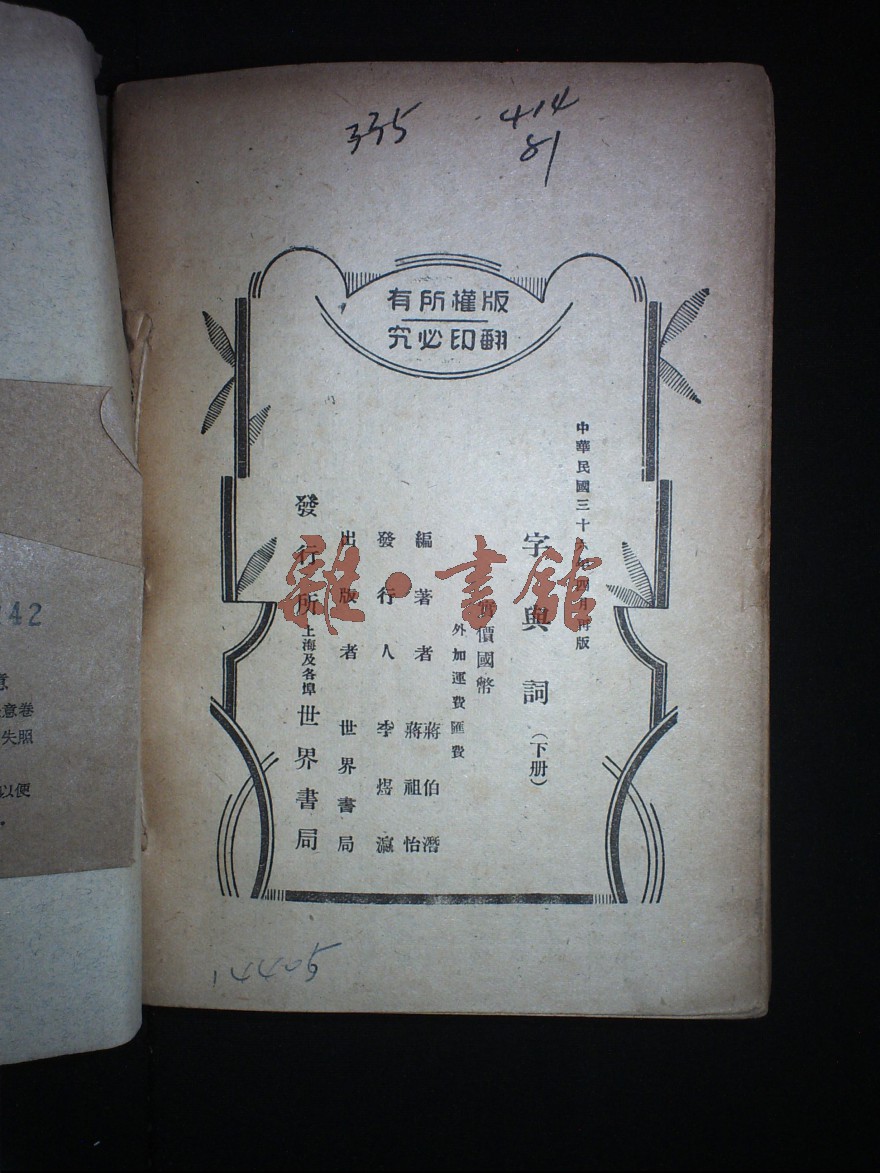 335
414
81
版權所有
翻印必究
中華民國三十 年四月再版
字與詞(下册)
實價國幣
外加運費匯費
編著者 蔣伯潛 蔣祖怡
發行人 李煜瀛
出版者 世界書局
發行所 上海及各埠 世界書局
雜·書館
142
意卷
失照
以便